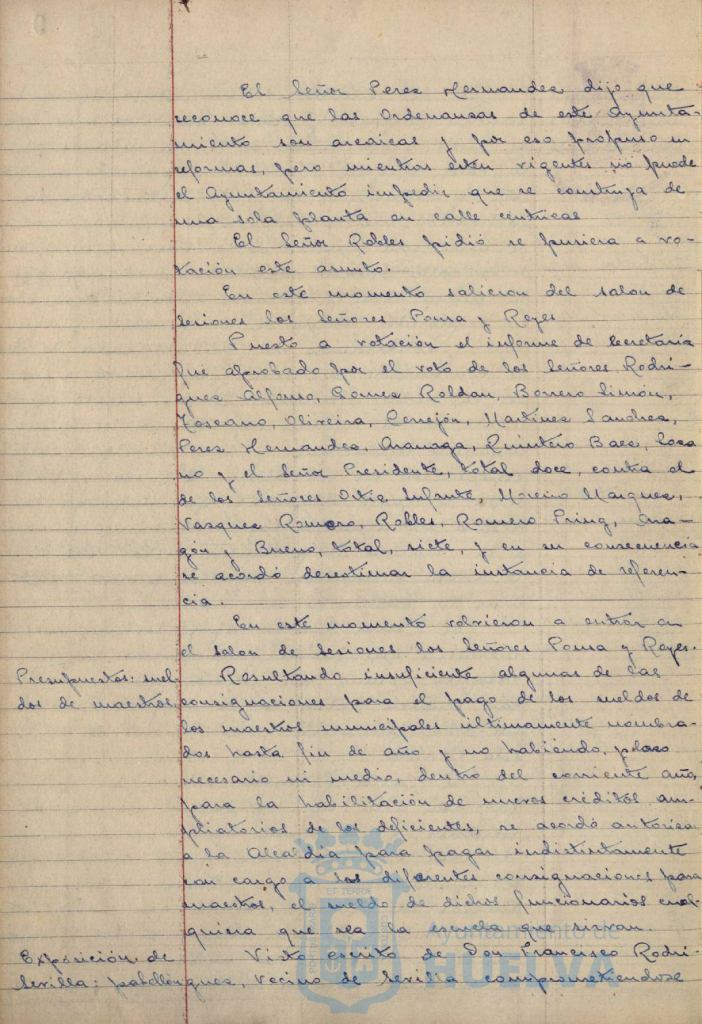 El Señor Perez Hernandez dijo que
reconoce que las Ordenanzas de este Ayunta-
miento son arcaicas y por eso propuso su
reformas, pero mientras esten vigentes no puede
el Ayuntamiento impedir que se construya de
una sola planta en calle centricas
El Señor Robles pidió se pusiera a vo-
tación este asunto.
En este momento salieron del salon de
sesiones los Señores Ponsa y Reyes
Puesto a votación el informe de Secretaria
fue aprobado por el voto de los Señores Rodri-
guez Alfonso, Gomez Roldan, Borrero Limón,
Toscano, Oliveira, Cerrejón, Martinez Sanchez,
Perez Hernandez, Aranaga, Quintero Baez, Loza
no y el Señor Presidente, total doce, contra el
de los Señores Ortiz Infante, Moreno Marquez,
Vazquez Romero, Robles, Romero Pring, Ara-
gón y Bueno, total, siete, y en su consecuencia
se acordó desestimar la instancia de referen-
cia.
En este momento volvieron a entrar en
el salon de sesiones los Señores Ponsa y Reyes.
Presupuestos: suel-
dos de maestros.
Resultando insuficiente algunas de las
consignaciones para el pago de los sueldos de
los maestros municipales ultimamente nombra-
dos hasta fin de año y no habiendo, plazo
necesario ni medio, dentro del corriente año,
para la habilitación de nuevos créditos am-
pliatorios de los deficientes, se acordó autorizar
a la Alcaldia para pagar indistintamente
con cargo a las diferentes consignaciones para
maestros, el sueldo de dichos funcionarios cual-
quiera que sea la escuela que sirvan.
Exposición de
Sevilla: pabellon
Visto escrito de Don Francisco Rodri-
guez, vecino de Sevilla comprometiendose
Ayuntamiento de
HUELVA